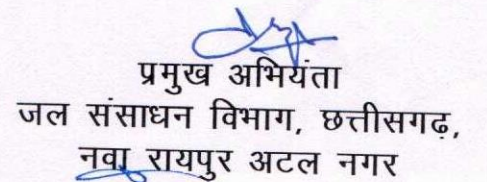 प्रमुख अभियंता
जल संसाधन विभाग, छत्तीसगढ़,
नवा रायपुर अटल नगर